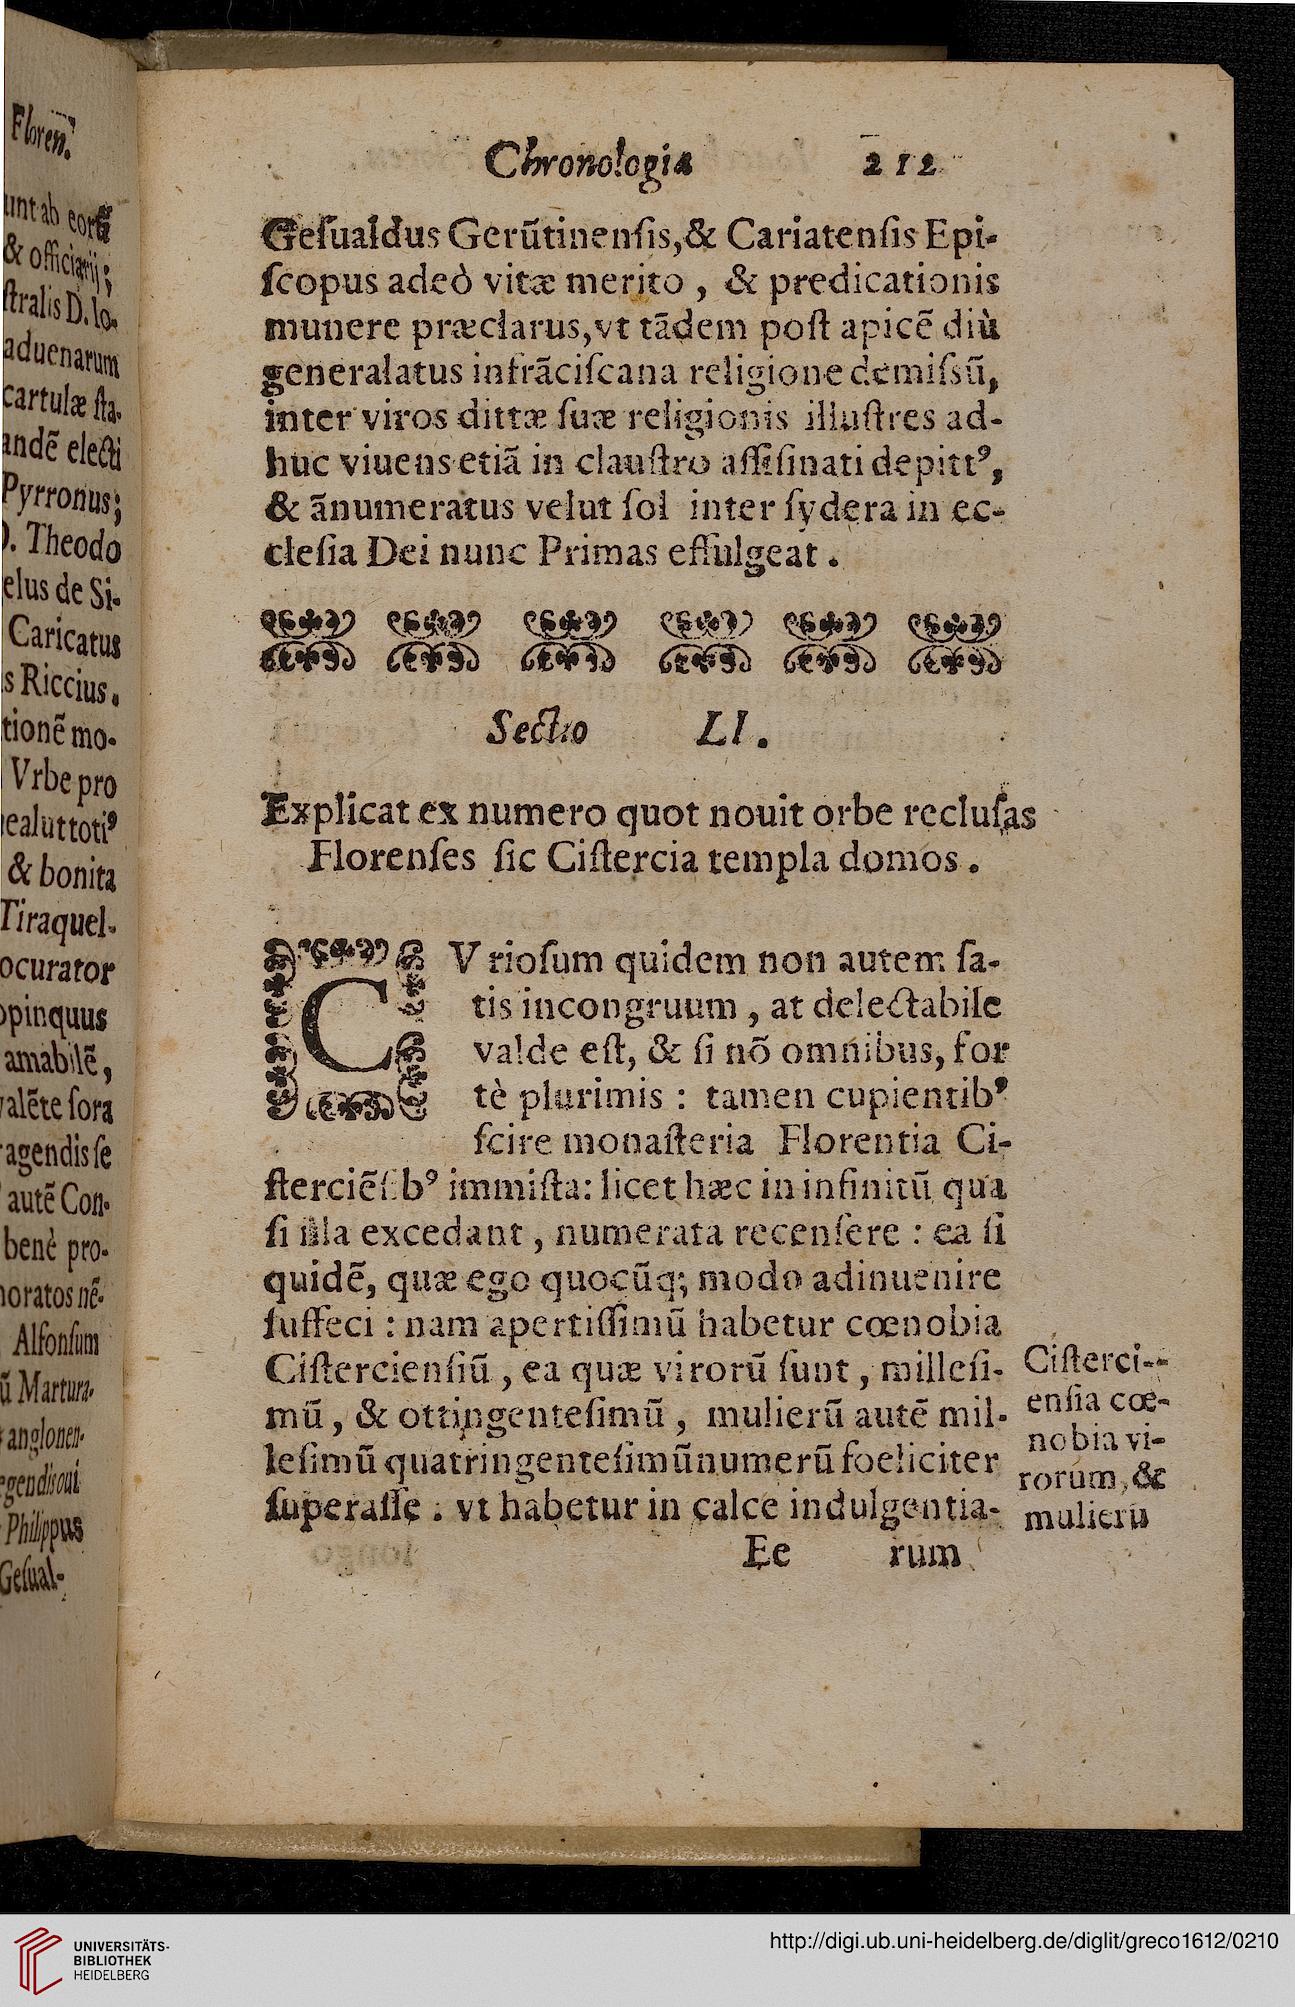 Floren.
unt ab eorū
& officiarij;
stralis D. Io-
aduenarum
cartulæ sta-
andē electi
Pyrronus;
D. Theodo
elus de Si-
Caricatus
s Riccius.
tionē mo-
Vrbe pro
ealut toti⁹
& bonita
Tiraquel-
ocurator
opinquus
amabilē,
valēte sora
agendis se
autē Con-
benè pro-
noratos nē-
Alfonsum
ū Martura-
anglonen-
gendis oui
Philippus
Gesual-
Chronologia 212
Geſualdus Gerūtinenſis,& Cariatenſis Epi-
ſcopus adeò vitæ merito , & predicationis
munere præclarus,vt tādem poſt apicē diù
generalatus infrāciſcana religione demiſsū,
inter viros dittæ ſuæ religionis illuſtres ad-
huc viuens etiā in clauſtro aſſiſinati depitt⁹,
& ānumeratus velut ſol inter ſydera in ec-
cleſia Dei nunc Primas effulgeat .
Sectio LI .
Explicat ex numero quot nouit orbe recluſas
Florenſes ſic Ciſtercia templa domos .
CVrioſum quidem non autem ſa-
tis incongruum , at delectabile
valde eſt, & ſi nō omnibus, for
tè plurimis : tamen cupientib⁹
ſcire monaſteria Florentia Ci-
ſterciēſib⁹ immiſta: licet hæc in infinitū qua
ſi illa excedant , numerata recenſere : ea ſi
quidē, quæ ego quocūq; modo adinuenire
ſuffeci : nam apertiſſimū habetur cœnobia
Ciſtercienſiū , ea quæ virorū ſunt , milleſi-
mū , & ottingenteſimū , mulierū autē mil-
leſimū quatringenteſimūnumerū foeliciter
ſuperaſſe . vt habetur in calce indulgentia-
Ciſterci-
enſia cœ-
nobia vi-
rorum, &
mulierū
Ee rum
UNIVERSITÄTS-
BIBLIOTHEK
HEIDELBERG
http://digi.ub.uni-heidelberg.de/diglit/greco1612/0210